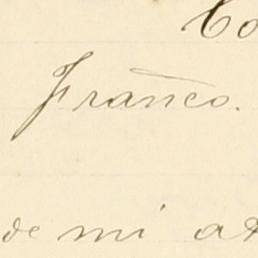 Co
Franco.
de mi at